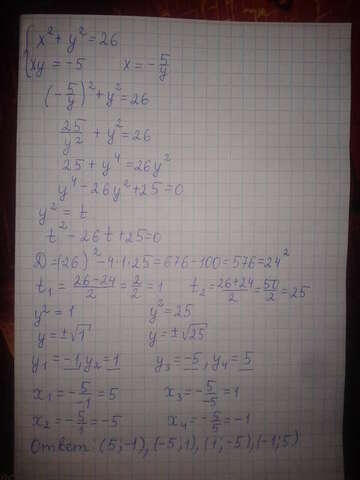 { x² + y² = 26
xy = -5    x = -5/y
(-5/y)² + y² = 26
25/y² + y² = 26
25 + y⁴ = 26y²
y⁴ - 26y² + 25 = 0
y² = t
t² - 26t + 25 = 0
D = (26)² - 4·1·25 = 676 - 100 = 576 = 24²
t₁ = (26-24)/2 = 2/2 = 1    t₂ = (26+24)/2 = 50/2 = 25
y² = 1    y² = 25
y = ±√1    y = ±√25
y₁ = -1, y₂ = 1    y₃ = -5, y₄ = 5
x₁ = -5/-1 = 5    x₃ = -5/-5 = 1
x₂ = -5/1 = -5    x₄ = -5/5 = -1
Ответ: (5;-1), (-5;1), (1;-5), (-1;5)